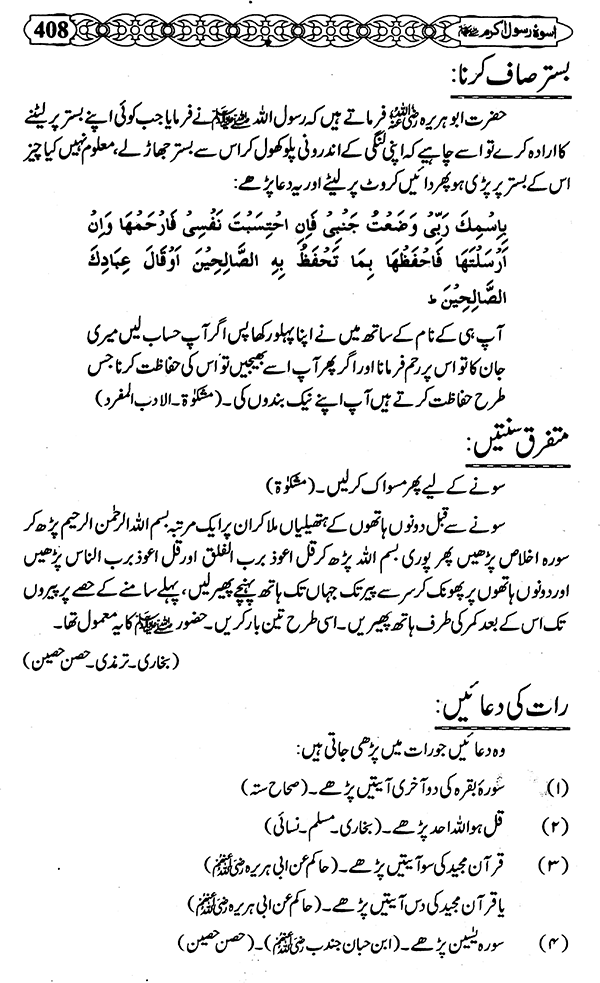 408
اسوۂ رسول اکرم ﷺ
بستر صاف کرنا:
حضرت ابو ہریرہ رضی اللہ عنہ فرماتے ہیں کہ رسول اللہ ﷺ نے فرمایا جب کوئی اپنے بستر پر لیٹنے
کا ارادہ کرے تو اسے چاہیے کہ اپنی لنگی کے اندرونی پلو کھول کر اس سے بستر جھاڑ لے، معلوم نہیں کیا چیز
اس کے بستر پر پڑی ہو پھر دائیں کروٹ پر لیٹے اور یہ دعا پڑھے:
بِاسْمِكَ رَبِّیْ وَضَعْتُ جَنْبِیْ فَاِنِ احْتَسَبْتَ نَفْسِیْ فَارْحَمْهَا وَاِنْ
اَرْسَلْتَهَا فَاحْفَظْهَا بِمَا تَحْفَظُ بِهِ الصَّالِحِیْنَ اَوْقَالَ عِبَادِكَ
الصَّالِحِیْنَ ط
آپ ہی کے نام کے ساتھ میں نے اپنا پہلو رکھا پس اگر آپ حساب لیں میری
جان کا تو اس پر رحم فرمانا اور اگر پھر آپ اسے بھیجیں تو اس کی حفاظت کرنا جس
طرح حفاظت کرتے ہیں آپ اپنے نیک بندوں کی۔ (مشکوٰۃ۔ الادب المفرد)
متفرق سنتیں:
سونے کے لیے پھر مسواک کر لیں۔ (مشکوٰۃ)
سونے سے قبل دونوں ہاتھوں کے ہتھیلیاں ملا کر ان پر ایک مرتبہ بسم اللہ الرحمٰن الرحیم پڑھ کر
سورہ اخلاص پڑھیں پھر پوری بسم اللہ پڑھ کر قل اعوذ برب الفلق اور قل اعوذ برب الناس پڑھیں
اور دونوں ہاتھوں پر پھونک کر سر سے پیر تک جہاں تک ہاتھ پہنچے پھیر لیں، پہلے سامنے کے حصے پر پیروں
تک اس کے بعد کمر کی طرف ہاتھ پھیریں۔ اسی طرح تین بار کریں۔ حضور ﷺ کا یہ معمول تھا۔
(بخاری۔ ترمذی۔ حصن حصین)
رات کی دعائیں:
وہ دعائیں جو رات میں پڑھی جاتی ہیں:
(۱) سورۂ بقرہ کی دو آخری آیتیں پڑھے۔ (صحاح ستہ)
(۲) قل ھو اللہ احد پڑھے۔ (بخاری۔ مسلم۔ نسائی)
(۳) قرآن مجید کی سو آیتیں پڑھے۔ (حاکم عن ابی ہریرہ رضی اللہ عنہ)
یا قرآن مجید کی دس آیتیں پڑھے۔ (حاکم عن ابی ہریرہ رضی اللہ عنہ)
(۴) سورہ یٰسین پڑھے۔ (ابن حبان جندب رضی اللہ عنہ)۔ (حصن حصین)